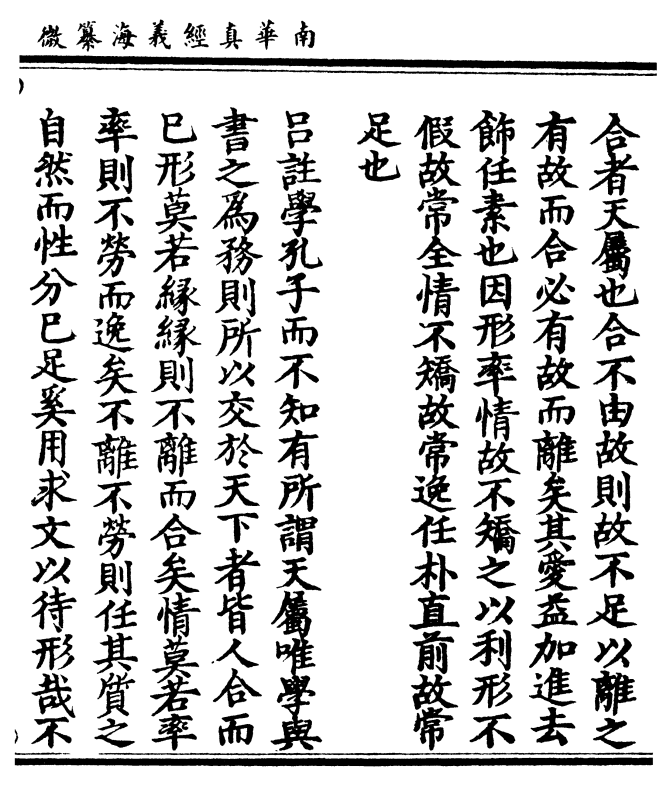 南華真經義海纂微
合者天屬也合不由故則故不足以離之
有故而合必有故而離矣其愛益加進去
飾任素也因形率情故不矯之以利形不
假故常全情不矯故常逸任朴直前故常
足也
呂註學孔子而不知有所謂天屬唯學與
書之為務則所以交於天下者皆人合而
已形莫若緣緣則不離而合矣情莫若率
率則不勞而逸矣不離不勞則任其質之
自然而性分已足奚用求文以待形哉不